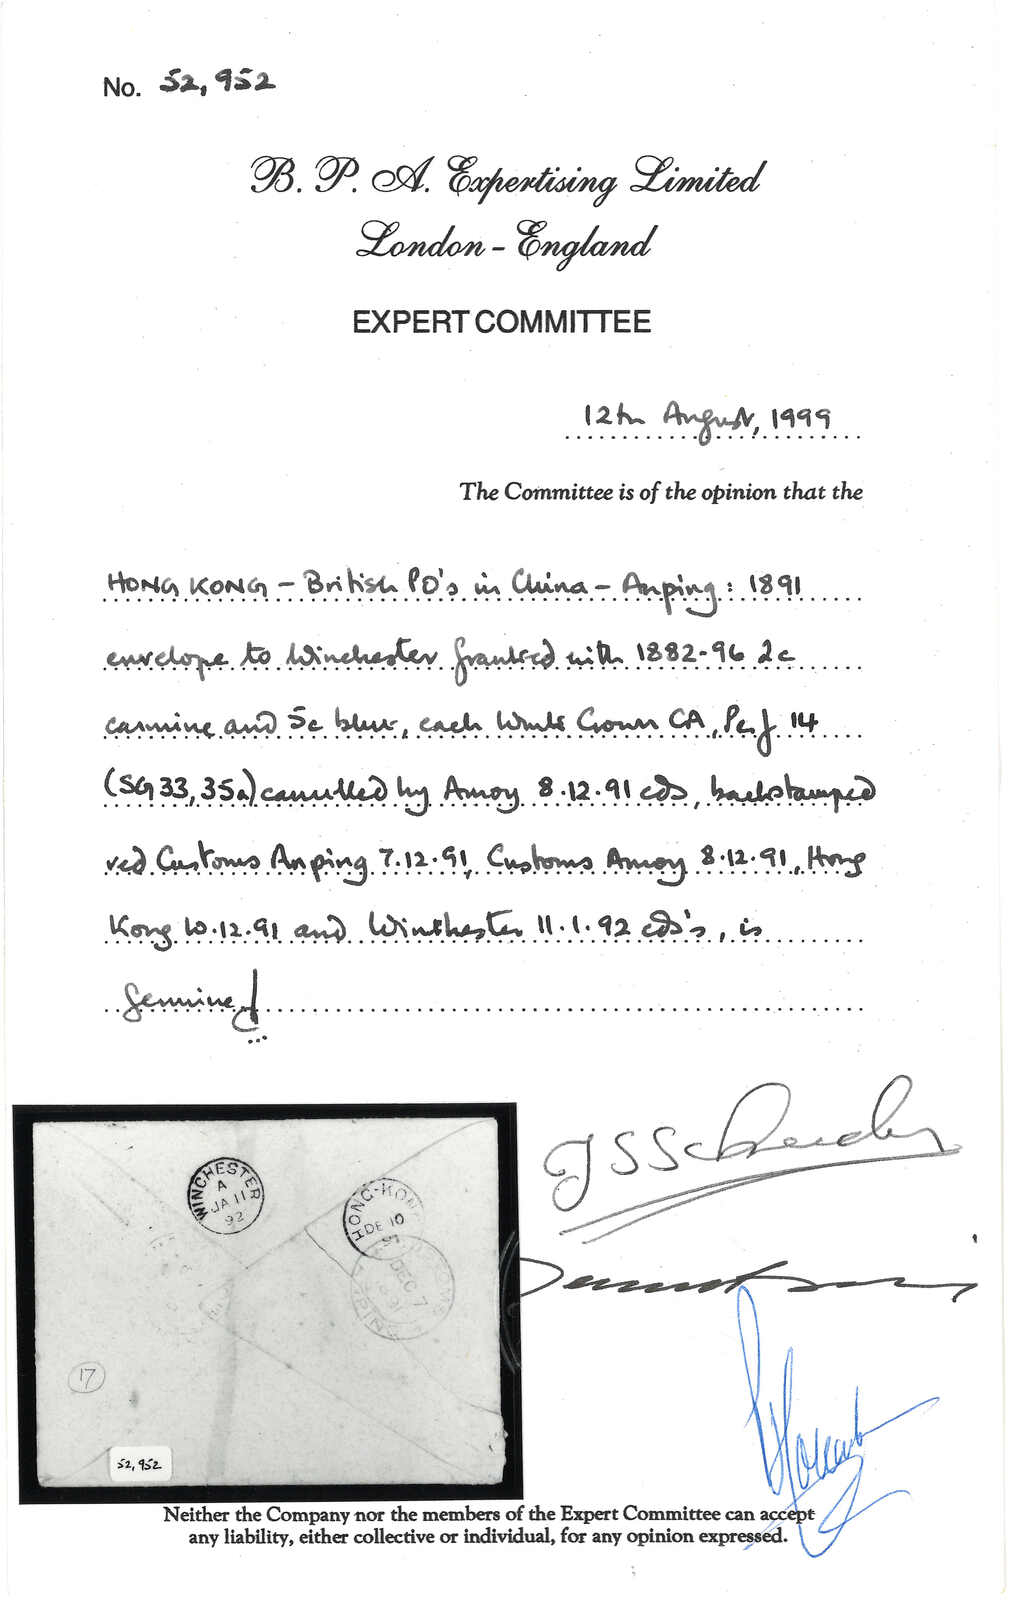 No. 52,952
B. P. A. Expertising Limited
London - England
EXPERT COMMITTEE
12th August, 1999
The Committee is of the opinion that the
HONG KONG - British PO's in China - Anping: 1891
envelope to Winchester franked with 1882-96 2c
carmine and 5c blue, each Wmk Crown CA, Perf 14
(SG 33, 35a) cancelled by Amoy 8.12.91 cds, backstamped
red Customs Anping 7.12.91, Customs Amoy 8.12.91, Hong
Kong 10.12.91 and Winchester 11.1.92 cds's, is
genuine
WINCHESTER
A
JA 11
92
HONG-KONG
DE 10
91
CUSTOMS
DEC 7
91
ANPING
17
52,952
Neither the Company nor the members of the Expert Committee can accept
any liability, either collective or individual, for any opinion expressed.